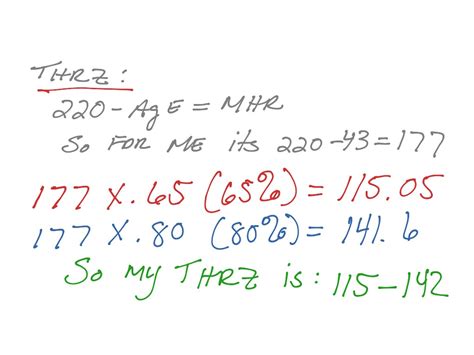 THRZ:
220-AgE = MHR
So FOR ME its 220-43=177
177 X .65 (65%) = 115.05
177 X .80 (80%) = 141.6
So my THRZ is: 115-142